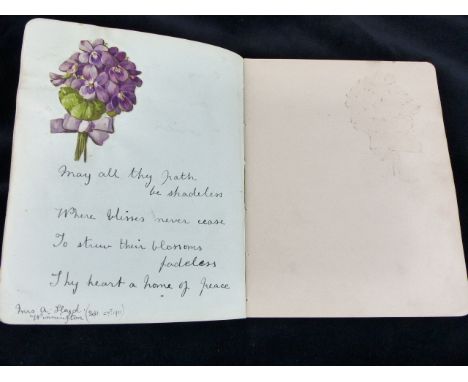 May all thy path
be shadeless
Where blisses never cease
To strew their blossoms
fadeless
Thy heart a home of peace
Mrs A Lloyd
Winnington